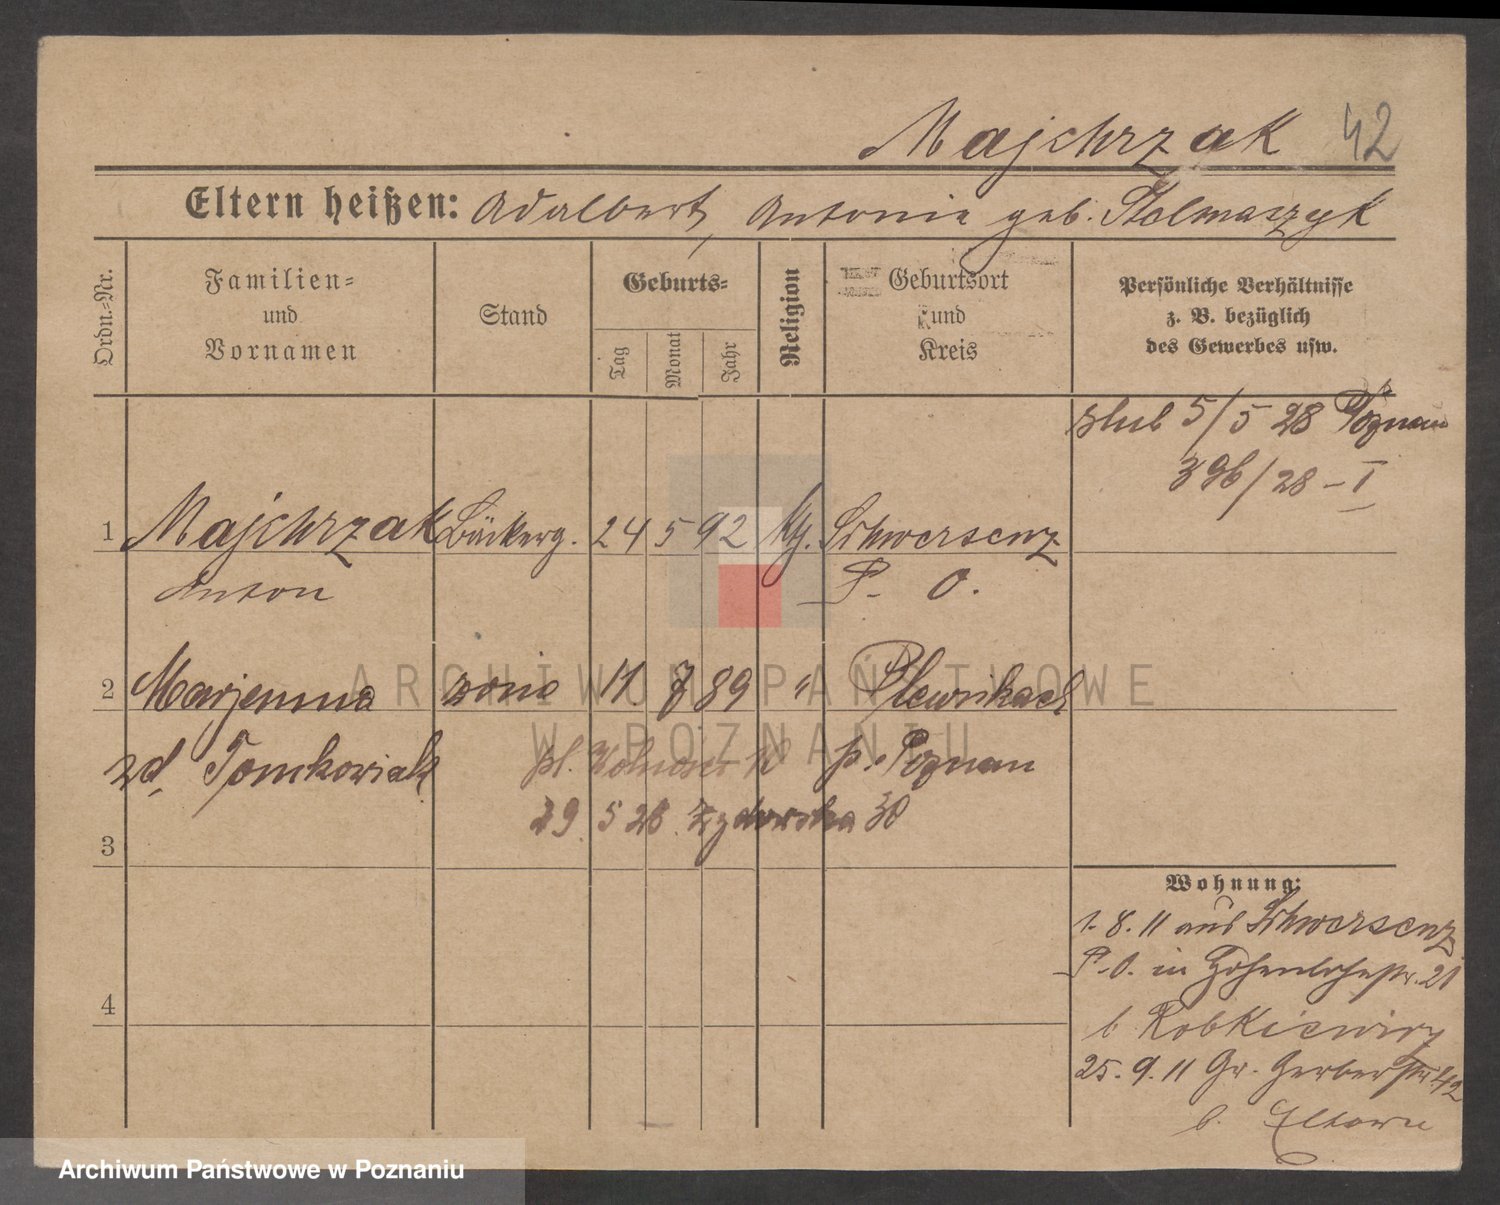 Majchrzak 42
Eltern heißen: Adalbert, Antonie geb. Stelmaszyk
Ordn.-Nr.
Familien-
und
Vornamen
Stand
Geburts-
Tag
Monat
Jahr
Religion
Geburtsort
und
Kreis
Persönliche Verhältnisse
z. B. bezüglich
des Gewerbes usw.
ślub 5/5 28 Poznan
396/28 - I
1 Majchrzak Bäckerg. 24 5 92 Schwersenz
Anton P. O.
2 Marjanna żona 11 7 89 "
zd. Tomkowiak p. Poznan
29 5 28 Żydowska 30
3
4
Wohnung:
1. 8. 11 aus Schwersenz
P.-O. in Hohenlohestr. 21
b. Robkiewicz
25. 9. 11 Gr. Gerberstr. 42
b. Eltern
ARCHIWUM PAŃSTWOWE
W POZNANIU
Archiwum Państwowe w Poznaniu